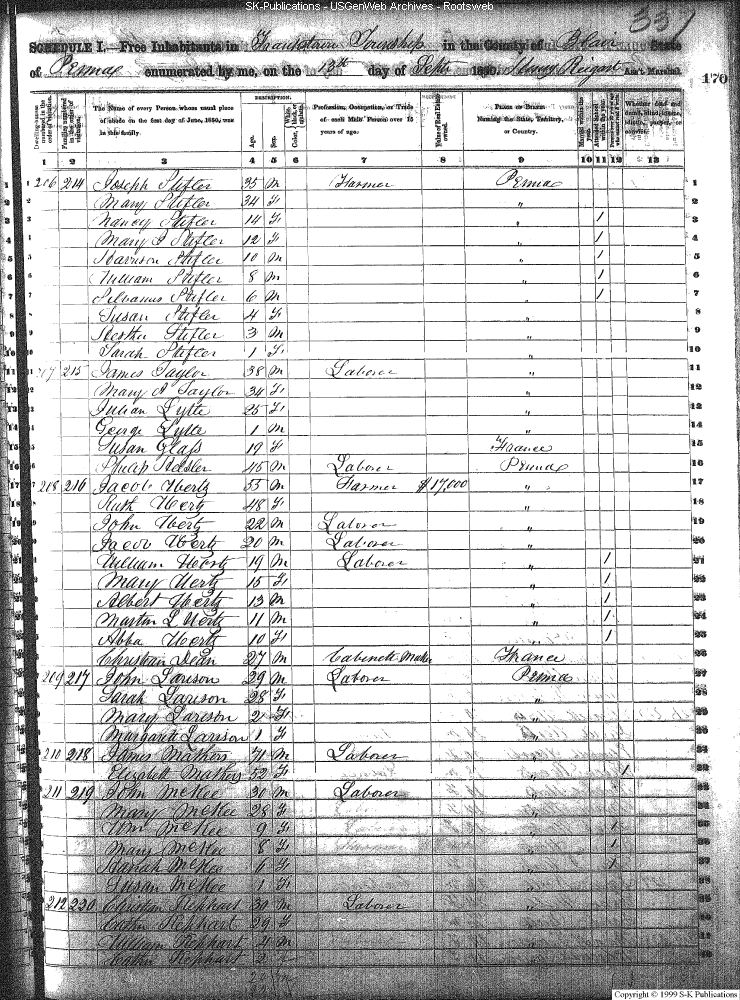 SK-Publications - USGenWeb Archives - Rootsweb
337
SCHEDULE I.—Free Inhabitants in Frankstown Township in the County of Blair State
of Penna enumerated by me, on the 13th day of Sept 1850. Henry Reigart Ass't Marshal. 170
Dwelling-houses numbered in the order of visitation.
Families numbered in the order of visitation.
The Name of every Person whose usual place of abode on the first day of June, 1850, was in this family.
DESCRIPTION.
Age.
Sex.
Color,
Profession, Occupation, or Trade of each Male Person over 15 years of age.
Value of Real Estate owned.
PLACE OF BIRTH. Naming the State, Territory, or Country.
Married within the year.
Attended School within the year.
Whether deaf and dumb, blind, insane, idiotic, pauper, or convict.
1 2 3 4 5 6 7 8 9 10 11 12 13
1 206 214 Joseph Stifler 35 M Farmer Penna 1
2 Mary Stifler 34 F " 2
3 Nancy Stifler 14 F " / 3
4 Mary J Stifler 12 F " / 4
5 Harrison Stifler 10 M " / 5
6 William Stifler 8 M " / 6
7 Silvanus Stifler 6 M " / 7
8 Susan Stifler 4 F " 8
9 Hester Stifler 3 M " 9
10 Sarah Stifler 1 F " 10
11 207 215 James Taylor 38 M Laborer " 11
12 Mary A Taylor 34 F " 12
13 Julian Lytle 25 F " 13
14 George Lytle 1 M " 14
15 Susan Glass 19 F France 15
16 Philip 45 M Laborer Penna 16
17 208 216 Jacob Hertz 55 M Farmer $17,000 " 17
18 Ruth Hertz 48 F " 18
19 John Hertz 22 M Laborer " 19
20 Jacob Hertz 20 M Laborer " 20
21 William Hertz 19 M Laborer " / 21
22 Mary Hertz 15 F " / 22
23 Albert Hertz 13 M " / 23
24 Martin L Hertz 11 M " / 24
25 Abba Hertz 10 F " / 25
26 Christian Dean 27 M Cabinett Maker France 26
27 209 217 John Larison 29 M Laborer Penna 27
28 Sarah Larison 28 F " 28
29 Mary Larison 2 F " 29
30 Margarett Larison 1 F " 30
31 210 218 James Mathers 71 M Laborer " 31
32 Elizabeth Mathers 52 F " / 32
33 211 219 John McKee 30 M Laborer " 33
34 Mary McKee 28 F " 34
35 Wm McKee 9 F " / 35
36 Mary McKee 8 F " / 36
37 Hanah McKee 6 F " / 37
38 Susan McKee 1 F " 38
39 212 220 Christian Rephart 30 M Laborer " 39
40 Rephart 29 F " 40
41 William Rephart 4 M " 41
42 Rephart 2 " 42
Copyright © 1999 S-K Publications